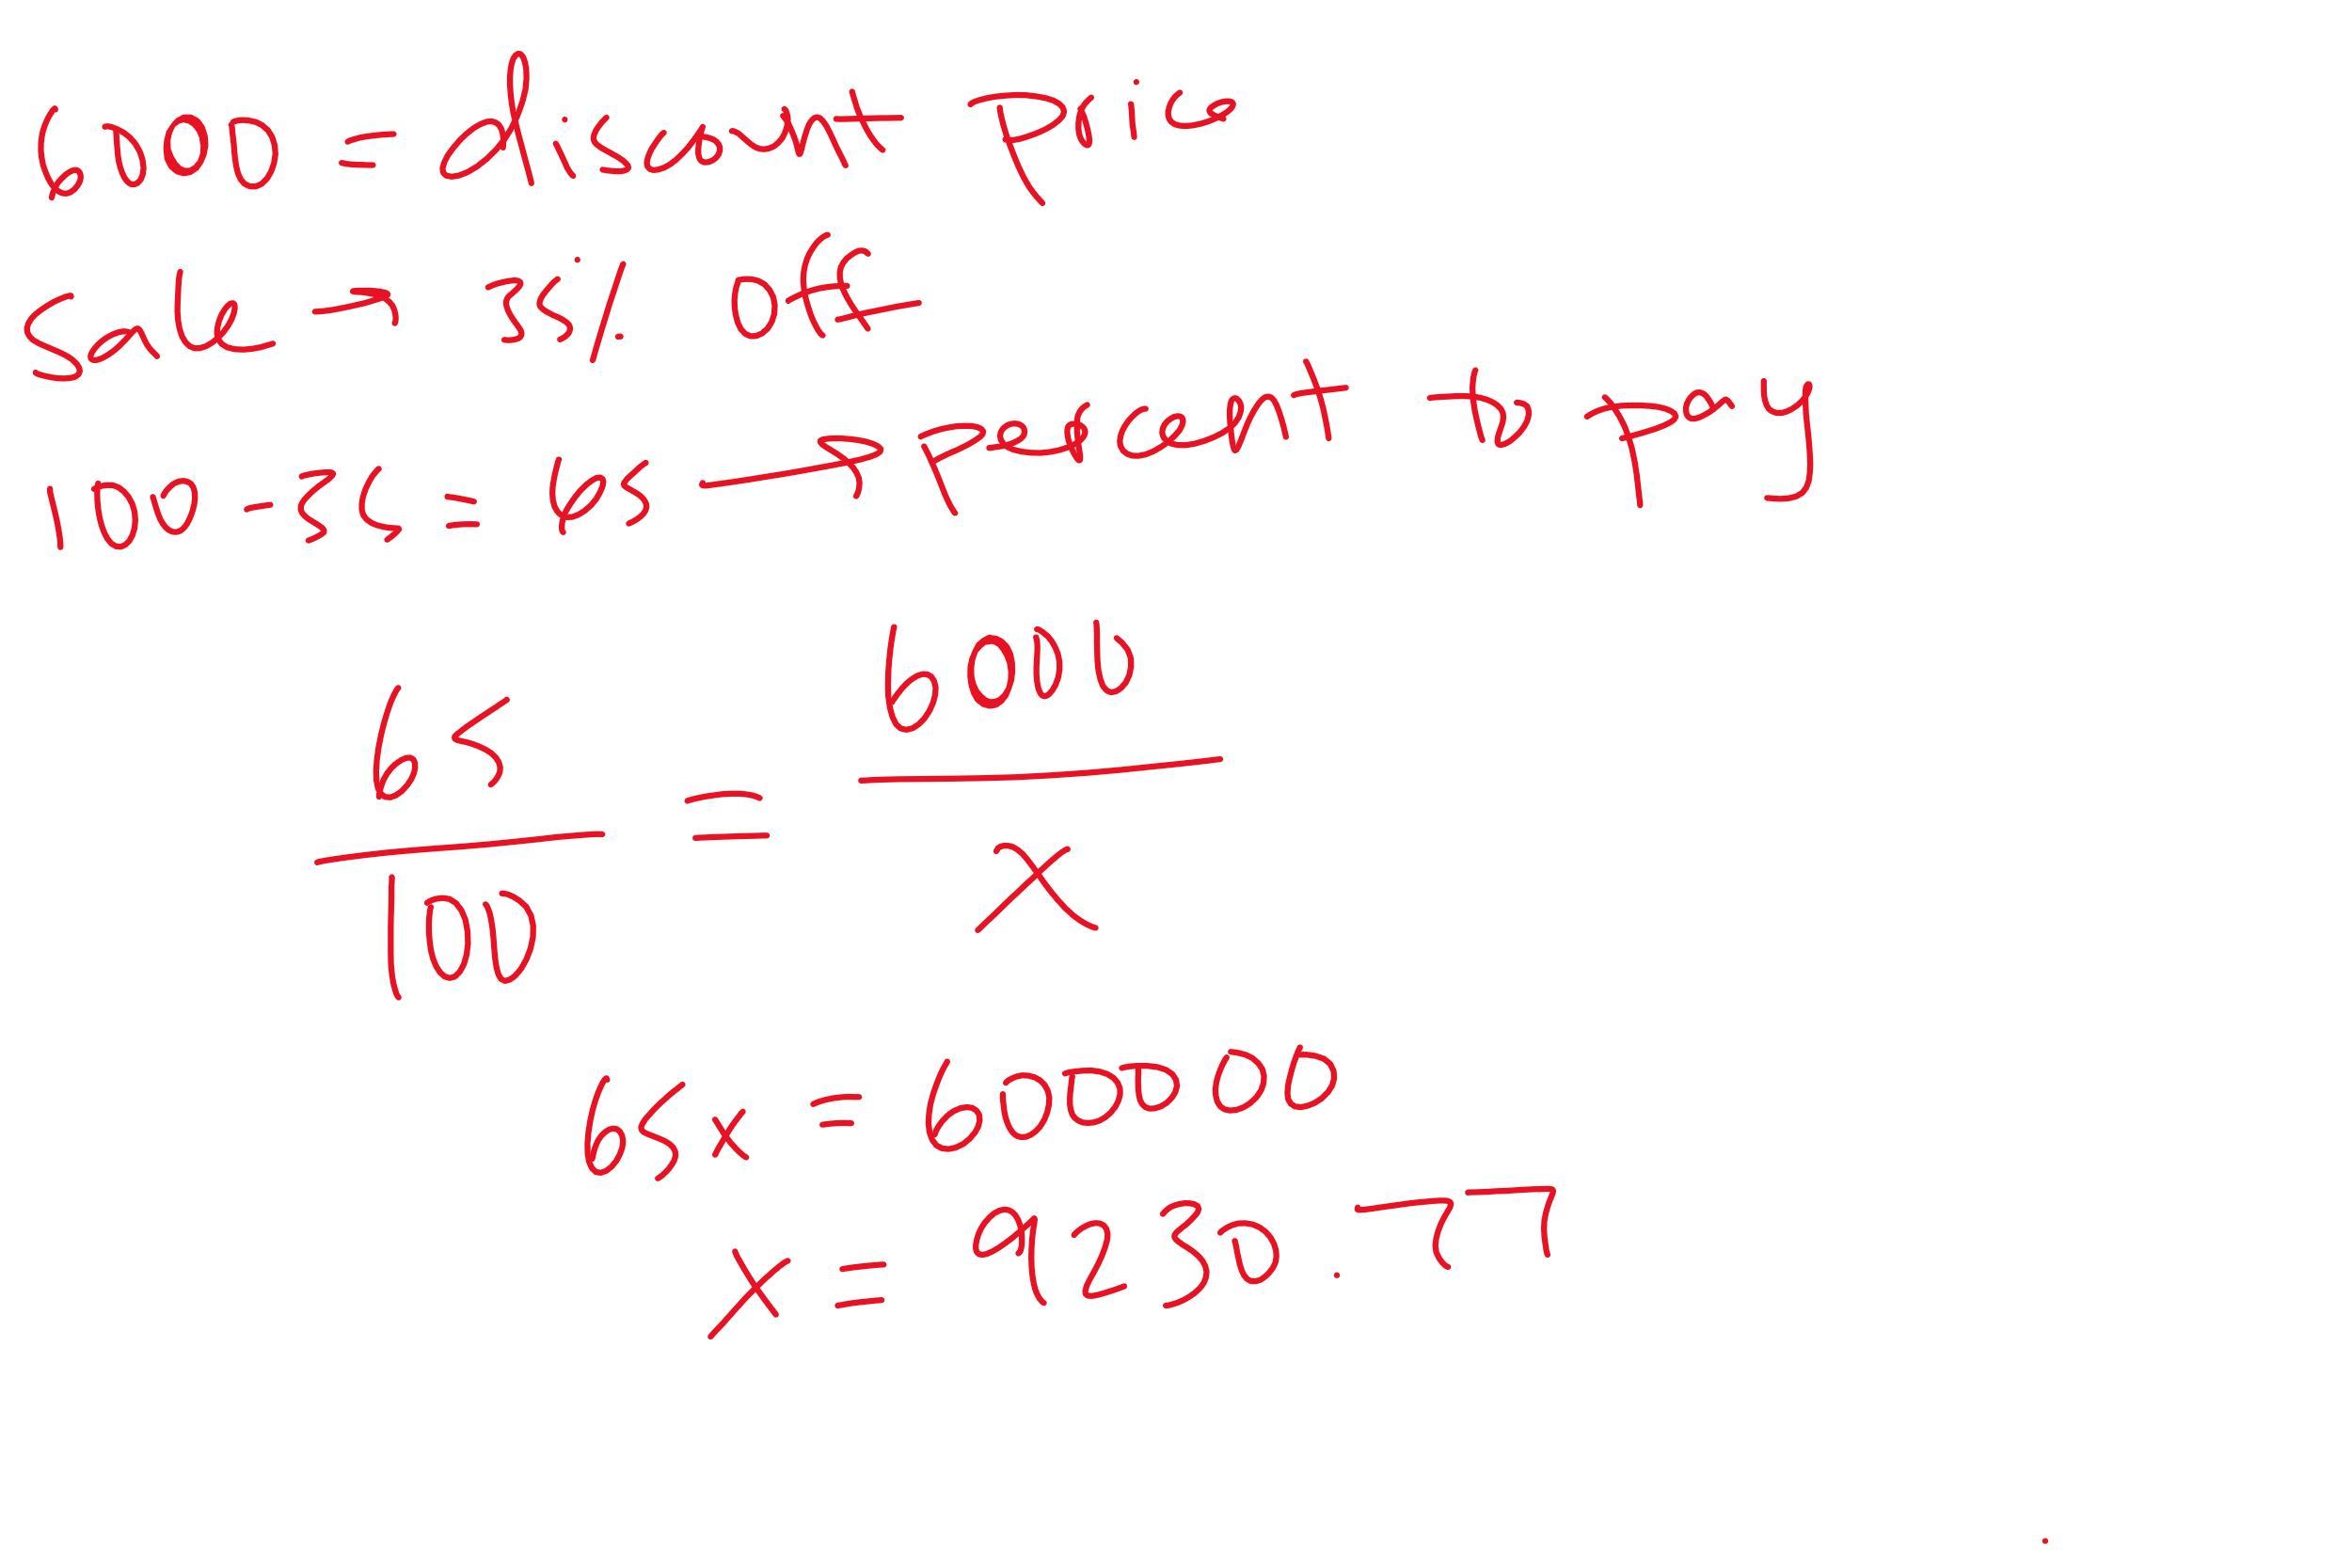 6000 = discount Price
Sale → 35% off
100 - 35 = 65 → Percent to pay
65/100 = 6000/x
65x = 600000
x = 9230.77